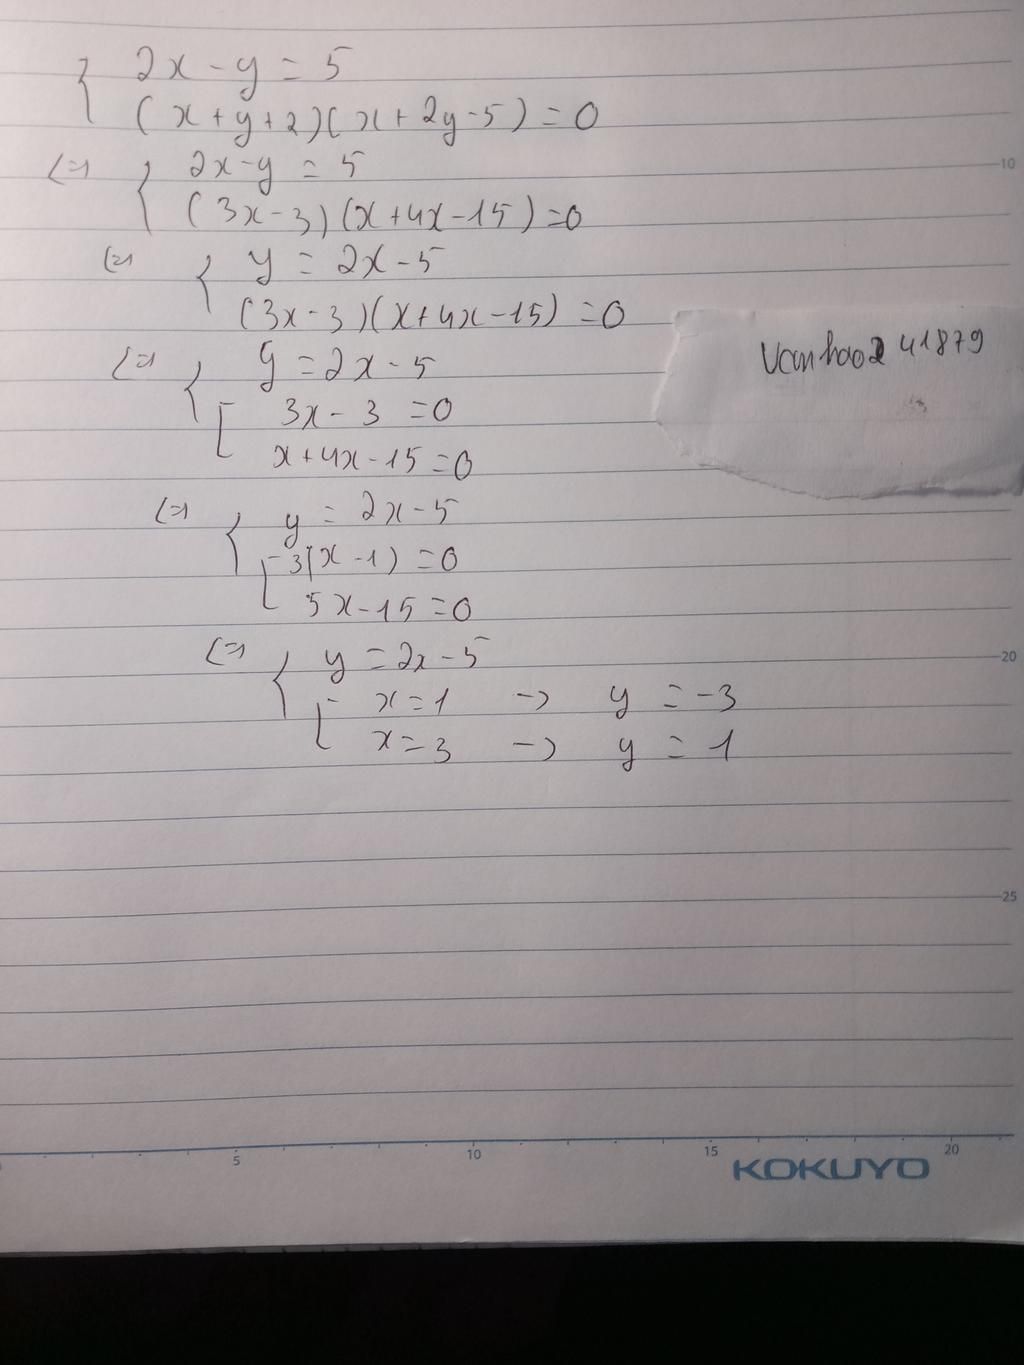 2x - y = 5
(x + y + 2)(x + 2y - 5) = 0
<=> 2x - y = 5
(3x - 3)(x + 4x - 15) = 0
<=> y = 2x - 5
(3x - 3)(x + 4x - 15) = 0
<=> y = 2x - 5
3x - 3 = 0
x + 4x - 15 = 0
<=> y = 2x - 5
3(x - 1) = 0
5x - 15 = 0
<=> y = 2x - 5
x = 1 -> y = -3
x = 3 -> y = 1
41879
10
20
25
5 10 15 20
KOKUYO